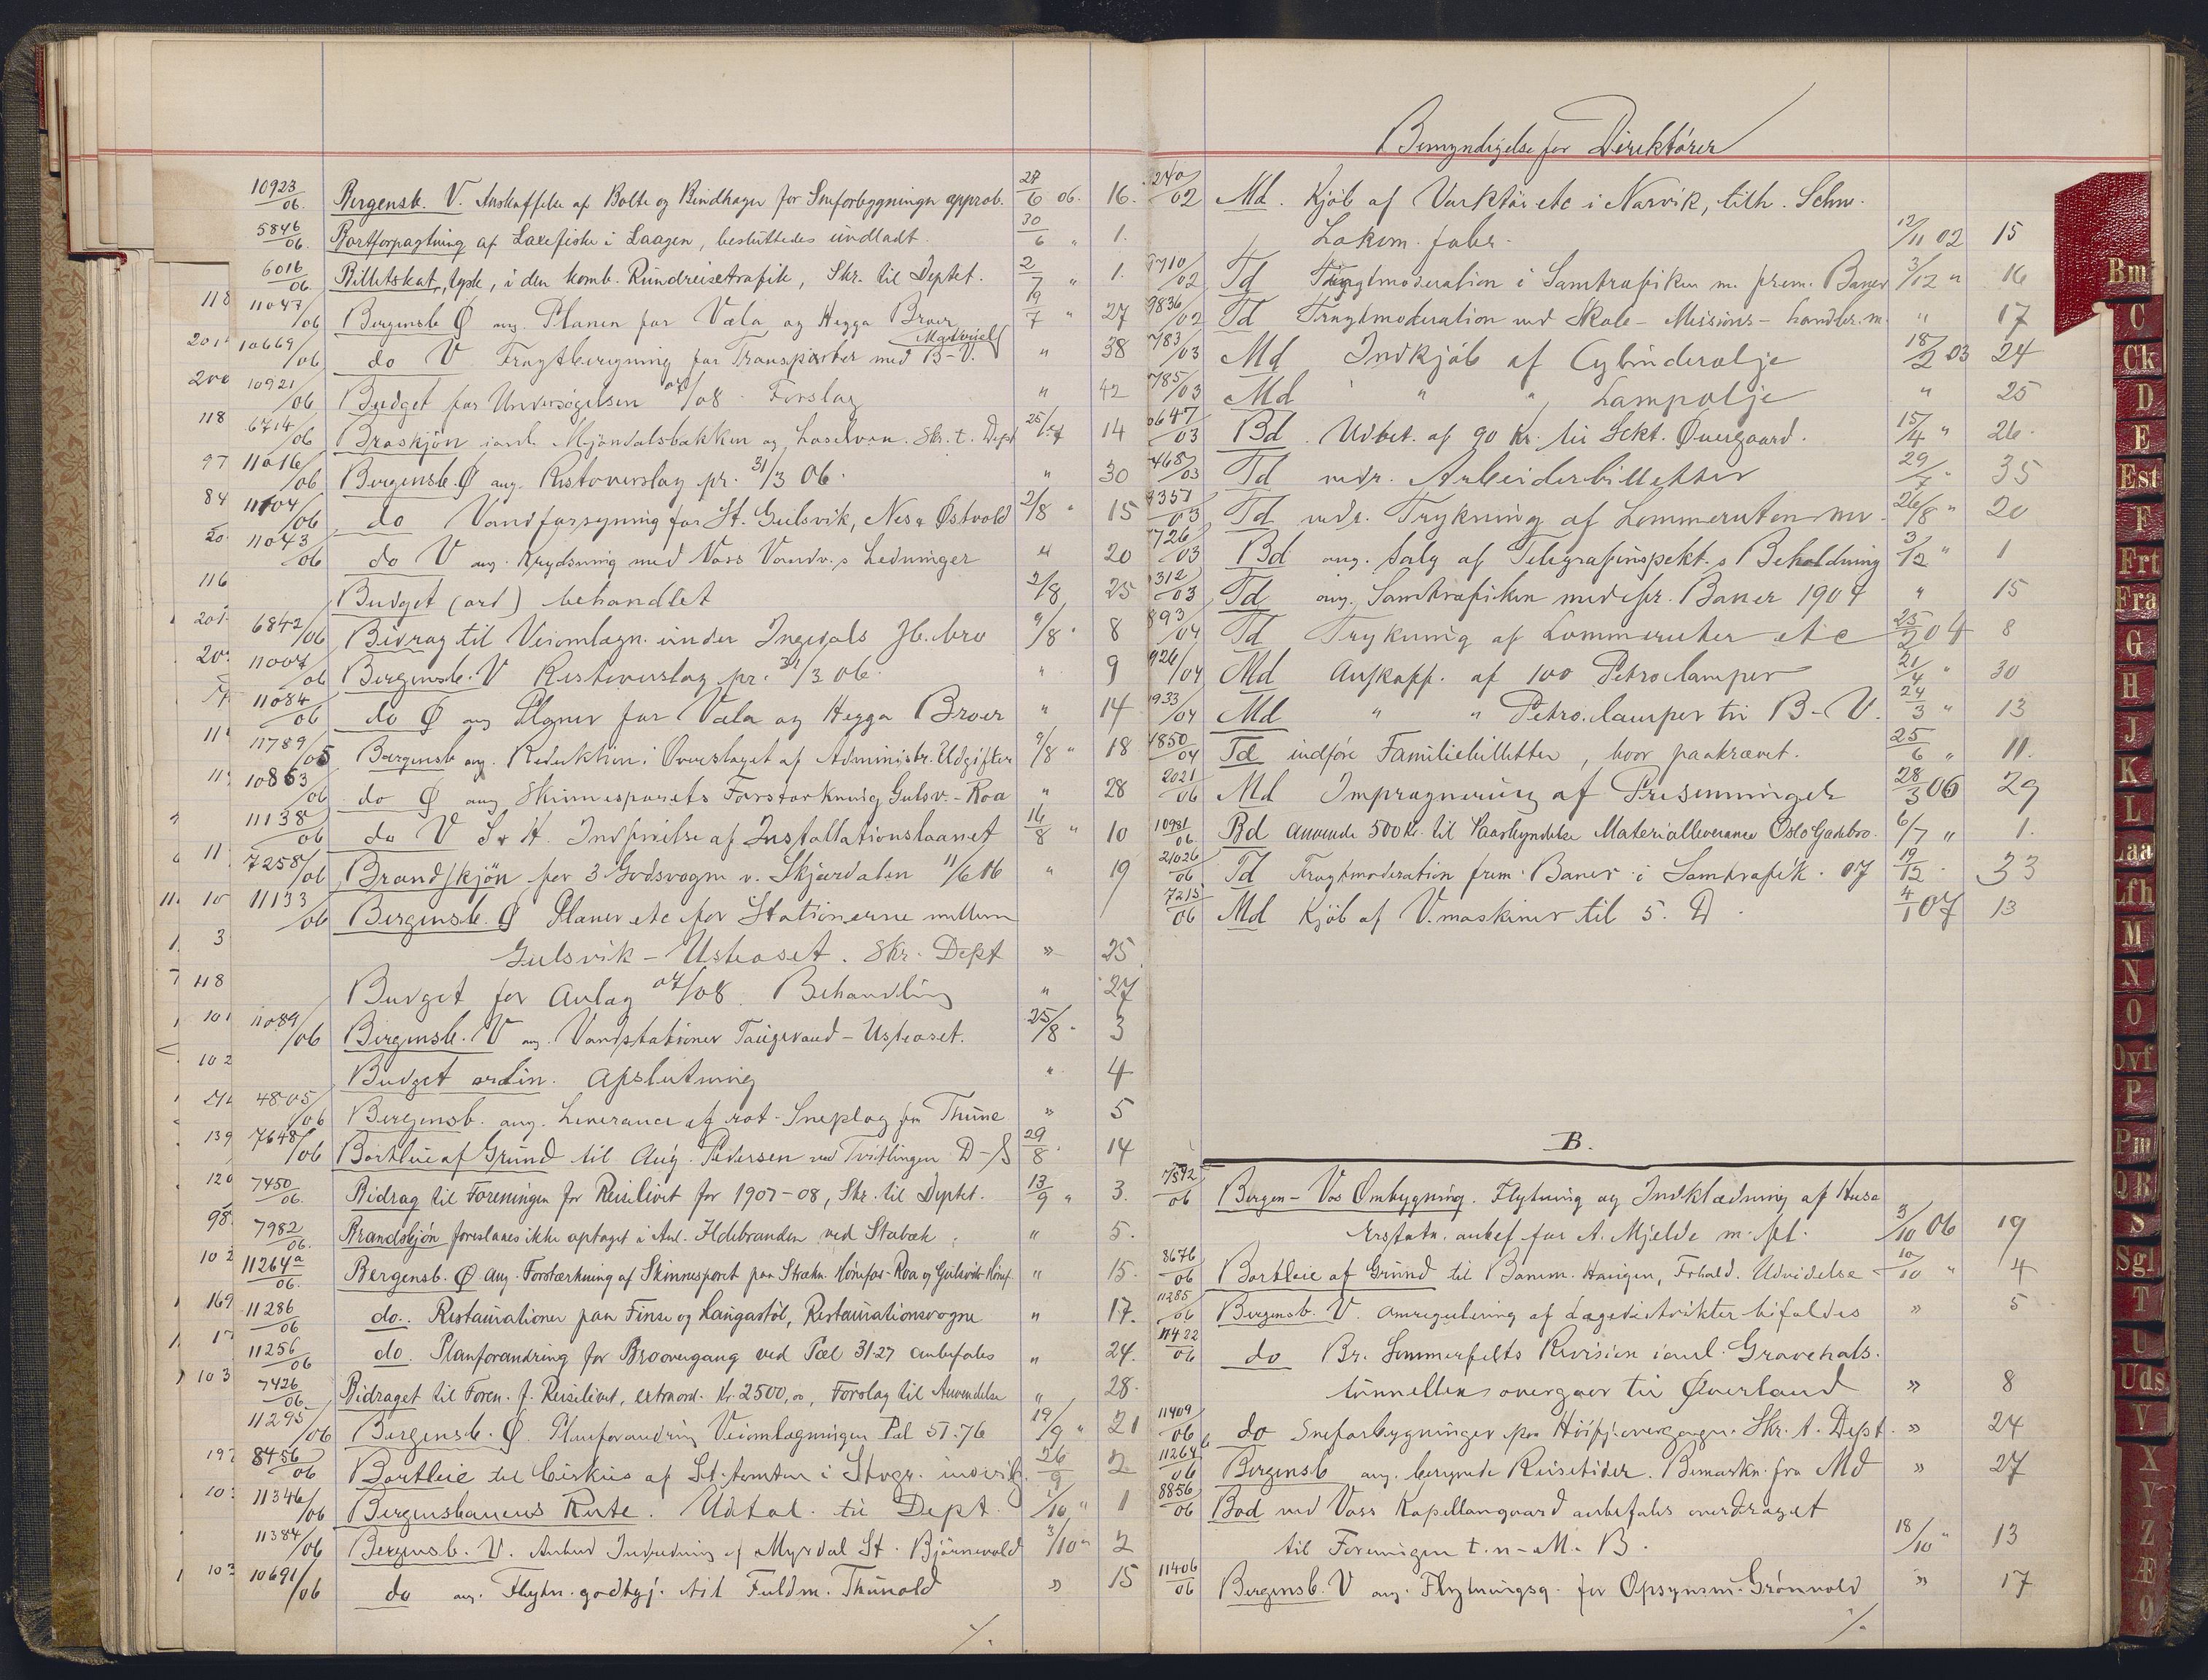 10923/06. Bergensb. V. Anskaffelse af Bolte og Bindhager for Sneforbygninger approb. 27/6 06. 16.
5846/06. Bortforpagtning af Laxefiske i Laagen, besluttedes undladt. 30/6 " 1.
6016/06. Billetskat, tysk, i den komb. Rundreisetrafik, Skr. til Deptet. 2/7 " 1.
118 11047/06 Bergensb Ø ang. Planen for Væla og Hegga Broer 19/7 " 27
10669/06 do V Fragtberegning for Transporter med B-V. Materiel " 38
200 10921/06 Budget for Undersøgelsen 07/08. Forslag " 42
118 6714/06 Braskjøn i anl. Mjøndalsbakken og Loselven. Skr. t. Dept 25/7 14
97 11016/06 Bergensb. Ø ang. Restoverslag pr. 31/3 06. " 30
84 11104/06 do Vandforsyning for St. Gulsvik, Nes & Østvold 2/8 " 15
20 11043/06 do V ang. Krydsning med Voss Vandv.s Ledninger " 20
116 Budget (ord) behandlet 2/8 25
201 6842/06 Bidrag til Veiomlægn. under Ingedals Jb. bro 9/8 " 8
20 11007/06 Bergensb. V Restoverslag pr. 31/3 06. " 9
11084/06 do Ø ang Planer for Væla og Hegga Broer " 14
11 11789/05 Bergensb ang. Reduktion i Overslaget af Administr. Udgifter 9/8 " 18
11 10863/06 do Ø ang Skinnesporets Forstærkning Gulsv.-Roa " 28
11138/06 do V S & H. Indfrielse af Installationslaanet 16/8 " 10
11 7258/06 Brandskjøn for 3 Godsvogne v. Skjærdalen 11/6 06 " 19
11. 10 11133/06 Bergensb. Ø Planer etc for Stationerne mellem
3 Gulsvik - Ustaoset. Skr. Dept " 25
118 Budget for Anlæg 07/08. Behandling " 27
101 11089/06 Bergensb. V ang. Vandstationer Taugevand - Ustaoset. 25/8 " 3
102 Budget ordin. Afslutning " 4
4805/06 Bergensb. ang. Leverance af rot. Sneplog fra Thune " 5
139 7648/06 Bortleie af Grund til Aug. Pedersen ved Tvitlingen D-S 29/8 " 14
120 7450/06. Bidrag til Foreningen for Reiselivet for 1907-08, Skr. til Deptet. 13/9 " 3.
98 7982/06. Brandskjøn foreslaaes ikke optaget i Anl. Ildebranden ved Stabæk. " 5.
102 11264a/06. Bergensb. Ø ang. Forstærkning af Skinnesporet paa Strækn. Hønefos-Roa og Gulsvik-Hønef. " 15.
169 11286/06 do. Restaurationer paa Finse og Haugastøl, Restaurationsvogne " 17.
11256/06 do. Planforandring for Broovergang ved Pæl 3127 anbefales " 24.
103 7426/06. Bidraget til Foren. f. Reiselivet, extraord. Kr. 2500,00, Forslag til Anvendelse " 28.
11295/06 Bergensb. Ø. Planforandring Veiomlægningen Pæl 51.76 19/9 " 21
197 8456/06 Bortleie til Cirkus af St. tomten i Stvgr. 26/9 2
11346/06 Bergensbanens Rute. Udtal. til Dept. 1/10 " 1
11384/06 Bergensb. V. Anbud Indredning af Myrdal St. Bjørnevold 3/10 " 2
103 10691/06 do ang. Flytn. godtgj. til Fuldm. Thunold " 15
./.
Bemyndigelse for Direktører
240/02 Md. Kjøb af Værktøi etc i Narvik, tilh. Schw.
Lokom. fabr. 12/11 02 15
9710/02 Td Fragtmoderation i Samtrafiken m. frem. Baner 3/12 " 16
9836/02 Td Fragtmoderation ved Skole- Missions- handler. m. " 17
783/03 Md Indkjøb af Cylinderolje 18/2 03 24
785/03 Md " " Lampolje " 25
0647/03 Bd. Udbet. af 90 Kr. til Sekt. Øvergaard. 15/4 " 26.
468/03 Td vedr. Arbeiderbilletter 29/7 " 35
9357/03 Td vedr. Trykning af Lommeruten 26/8 " 20
726/03 Bd ang. Salg af Telegrafinspekt.s Beholdning 3/12 " 1
312/03 Td ang. Samtrafiken med fr. Baner 1904 " 15
893/04 Td Trykning af Lommeruter etc 25/2 04 8
926/04 Md Anskaff. af 100 Petrolamper 21/4 " 30
1933/04 Md " " Petro.lamper til B-V. 24/3 " 13
4850/04 Td indføre Familiebilletter, hvor paakrævet. 25/6 " 11.
2021/06 Md Imprægnering af Presenninger 28/3 06 29
10981/06 Bd anvende 500 Kr. til Paaskyndelse Materialleverance Oslo Gadebro. 6/7 " 1.
21026/06 Td Fragtmoderation frem. Baner i Samtrafik. 07 19/12 . 33
7215/06 Md Kjøb af V.maskiner til 5. D. 4/1 07 13
B.
7592/06 Bergen-Vos Ombygning. Flytning og Indklædning af Huse
Erstatn. anbef for A. Mjelde m. fl. 3/10 06 19
8676/06 Bortleie af Grund til Banem. Haugen, Forhold. Udvidelse 10/10 " 4
11285/06 Bergensb. V. Omregulering af Lægedistrikter bifaldes " 5
11422/06 do Br. Sommerfelts Revision i anl. Gravehals.
tunnellen overgaar til Øverland " 8
11409/06 do Sneforbygninger paa Høifj. overgangen. Skr. t. Dept. " 24
11264b/06 Bergensb ang. beregnede Reisetider. Bemærkn. fra Md " 27
8856/06 Bod ved Voss Kapellangaard anbefales overdraget
til Foreningen t. n - M. B. 18/10 " 13
11406/06 Bergensb. V ang. Flytningsg. for Opsynsm. Grønvold " 17
./.
Bm
C
Ck
D
E
Est
F
Frt
Fra
G
H
J
K
L
Laa
Lfh
M
N
O
Ovf
P
Pm
Q R
S
Sgl
T
U
Uds
V
X
Y
Z
Æ
Ø